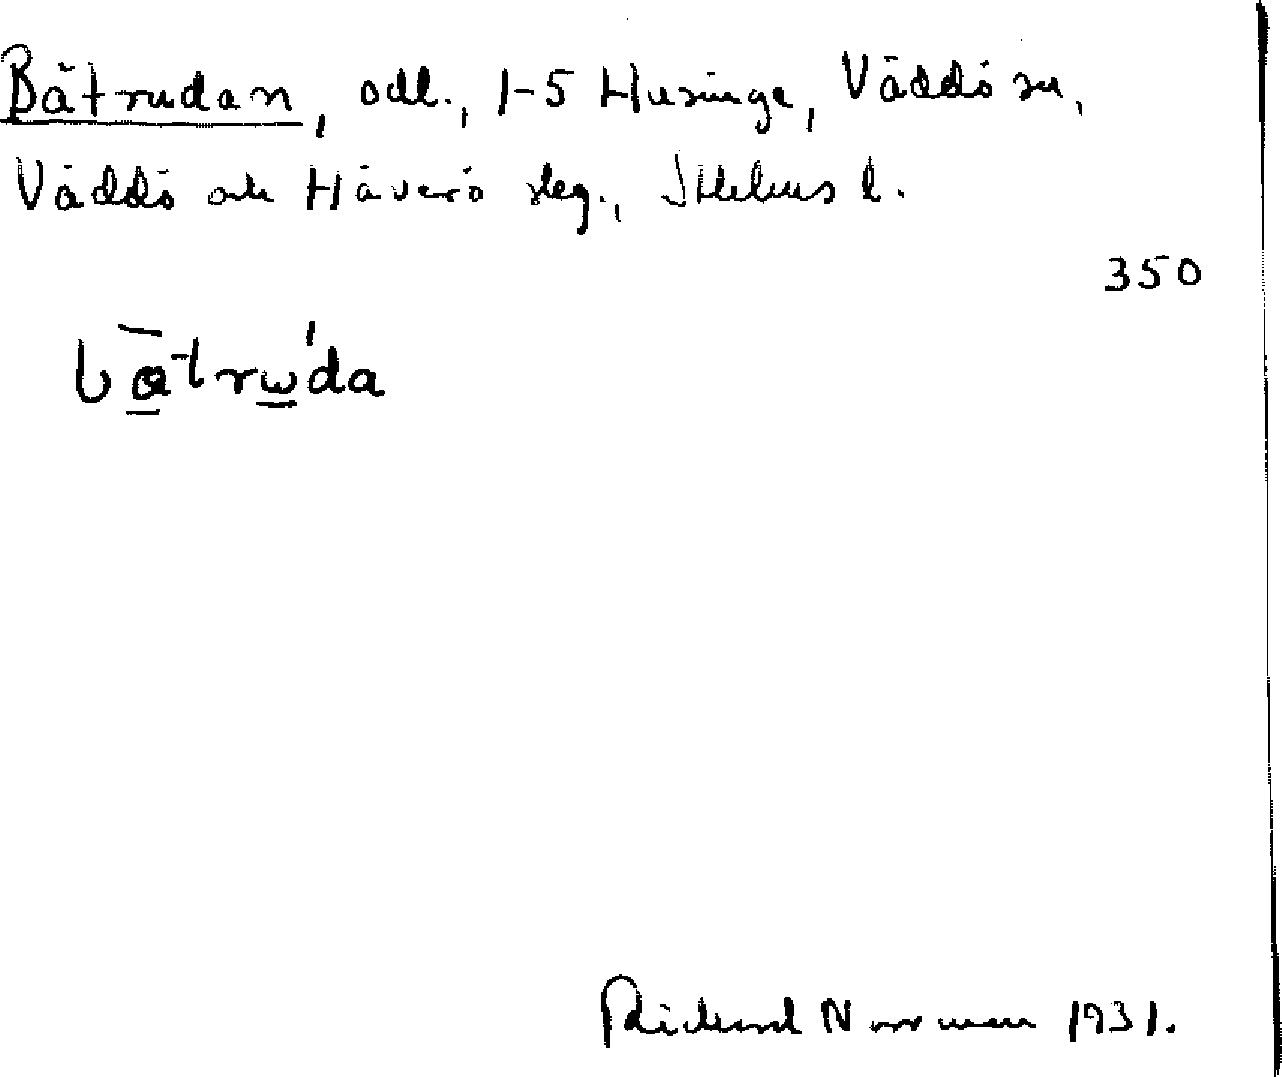 Båtrudan, odl., 1-5 Husinge, Väddö sn,
Väddö och Häverö skg., Sthlms l.
350
båtruda
Rickard Norrman 1931.